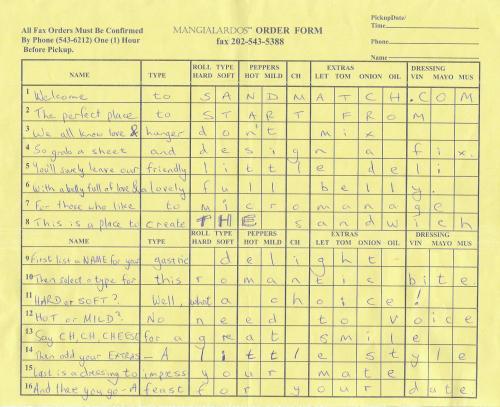 All Fax Orders Must Be Confirmed
By Phone (543-6212) One (1) Hour
Before Pickup.
MANGIALARDOS™ ORDER FORM
fax 202-543-5388
PickupDate/
Time
Phone
Name
NAME TYPE ROLL TYPE HARD SOFT PEPPERS HOT MILD CH EXTRAS LET TOM ONION OIL DRESSING VIN MAYO MUS
1 Welcome to SANDMATCH.COM
2 The perfect place to START FROM
3 We all know love & hunger don't mix
4 So grab a sheet and design a fix.
5 You'll surely leave our friendly little deli
6 With a belly full of love & a lovely full belly.
7 For those who like to micromanage
8 This is a place to create THE sandwich
NAME TYPE ROLL TYPE HARD SOFT PEPPERS HOT MILD CH EXTRAS LET TOM ONION OIL DRESSING VIN MAYO MUS
9 First list a NAME for your gastric delight
10 Then select a type for this romantic bite.
11 HARD or SOFT? Well, what a choice!
12 HOT or MILD? No need to voice
13 Say CH, CH, CHEESE for a great smile
14 Then add your EXTRAS - A little style
15 Last is a dressing to impress your mate
16 And there you go - A feast for your date.